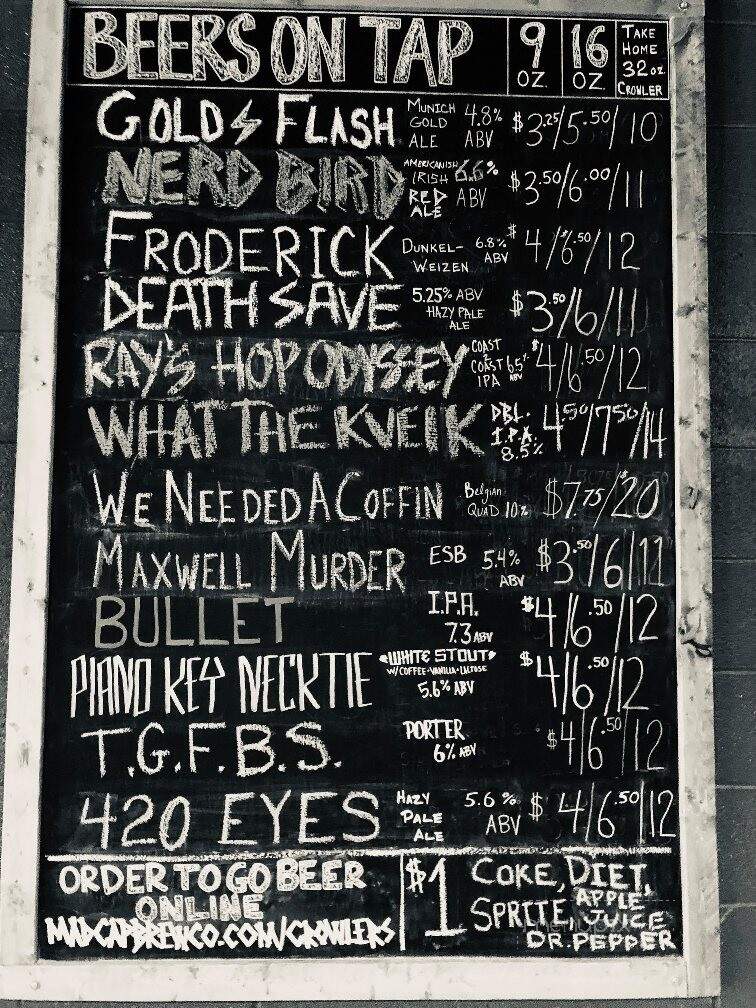 BEERS ON TAP 9 OZ. 16 OZ. TAKE HOME 32oz CROWLER
GOLD FLASH MUNICH GOLD ALE 4.8% ABV $3.25/5.50/10
NERD BIRD AMERICANISH IRISH RED ALE 6.6% ABV $3.50/6.00/11
FRODERICK DUNKEL-WEIZEN 6.8% ABV $4/6.50/12
DEATH SAVE 5.25% ABV HAZY PALE ALE $3.50/6/11
RAY'S HOP ODYSSEY COAST 2 COAST IPA 6.5% ABV $4/6.50/12
WHAT THE KVEIK DBL. I.P.A. 8.5% 4.50/7.50/14
WE NEEDED A COFFIN Belgian QUAD 10% $7.75/20
MAXWELL MURDER ESB 5.4% ABV $3.50/6/11
BULLET I.P.A. 7.3 ABV $4/6.50/12
PIANO KEY NECKTIE WHITE STOUT W/COFFEE-VANILLA-LACTOSE 5.6% ABV $4/6.50/12
T.G.F.B.S. PORTER 6% ABV $4/6.50/12
420 EYES HAZY PALE ALE 5.6% ABV $4/6.50/12
ORDER TO GO BEER
ONLINE
MADCAPBREWCO.COM/CROWLERS
$1 COKE, DIET,
SPRITE, APPLE JUICE
DR. PEPPER